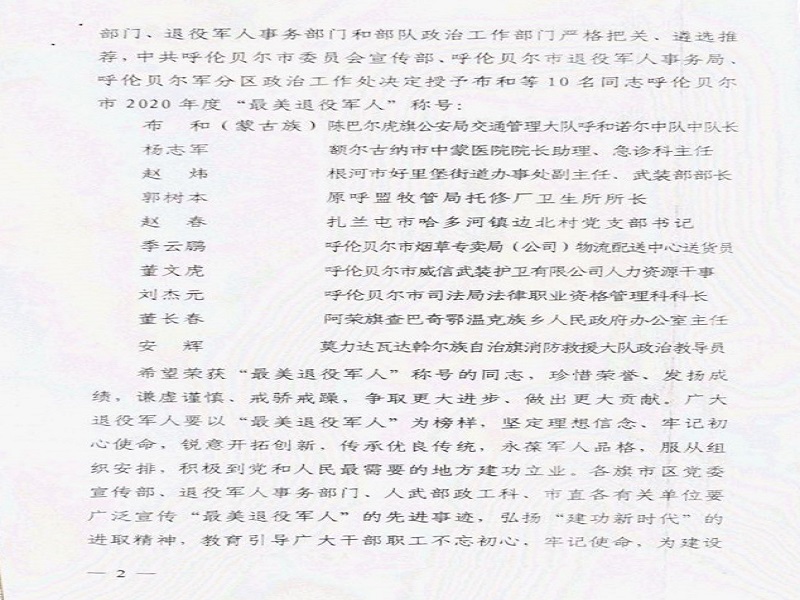 部门、退役军人事务部门和部队政治工作部门严格把关、遴选推
荐，中共呼伦贝尔市委员会宣传部、呼伦贝尔市退役军人事务局、
呼伦贝尔军分区政治工作处决定授予布和等10名同志呼伦贝尔
市2020年度“最美退役军人”称号：
布 和（蒙古族） 陈巴尔虎旗公安局交通管理大队呼和诺尔中队中队长
杨志军 额尔古纳市中蒙医院院长助理、急诊科主任
赵 炜 根河市好里堡街道办事处副主任、武装部部长
郭树本 原呼盟牧管局托修厂卫生所所长
赵 春 扎兰屯市哈多河镇边北村党支部书记
季云鹏 呼伦贝尔市烟草专卖局（公司）物流配送中心送货员
董文虎 呼伦贝尔市威信武装护卫有限公司人力资源干事
刘杰元 呼伦贝尔市司法局法律职业资格管理科科长
董长春 阿荣旗查巴奇鄂温克族乡人民政府办公室主任
安 辉 莫力达瓦达斡尔族自治旗消防救援大队政治教导员
希望荣获“最美退役军人”称号的同志，珍惜荣誉、发扬成
绩，谦虚谨慎、戒骄戒躁，争取更大进步、做出更大贡献。广大
退役军人要以“最美退役军人”为榜样，坚定理想信念、牢记初
心使命，锐意开拓创新、传承优良传统，永葆军人品格，服从组
织安排，积极到党和人民最需要的地方建功立业。各旗市区党委
宣传部、退役军人事务部门、人武部政工科、市直各有关单位要
广泛宣传“最美退役军人”的先进事迹，弘扬“建功新时代”的
进取精神，教育引导广大干部职工不忘初心，牢记使命，为建设
— 2 —